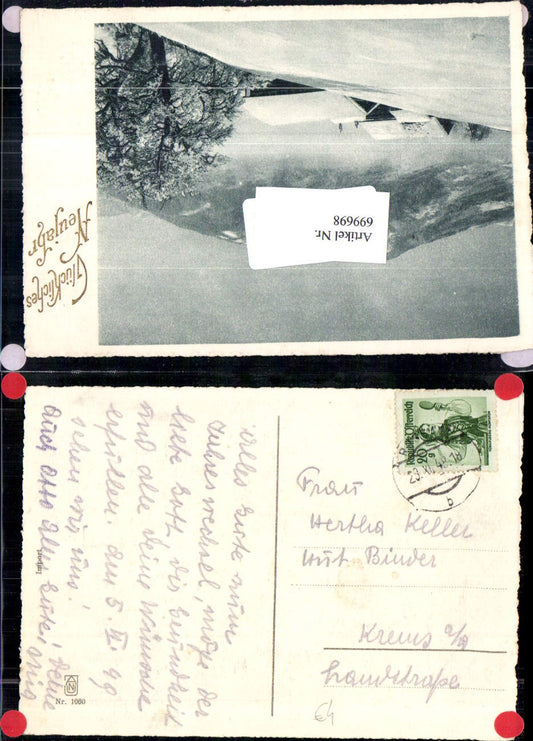 Glückliches
Neujahr
Artikel Nr.
699698
Alles Gute zum
Jahreswechsel, möge der
liebe Gott, die Gesundheit
und alle Deine Wünsche
erfüllen. am 5. II. 49
sehen wir uns!
auch Otto alles Gute, Deine
Import
Nr. 1060
Republik Österreich
20
b
Frau
Hertha Keller
Hut Binder
Krems a/D
Landstraße
€4